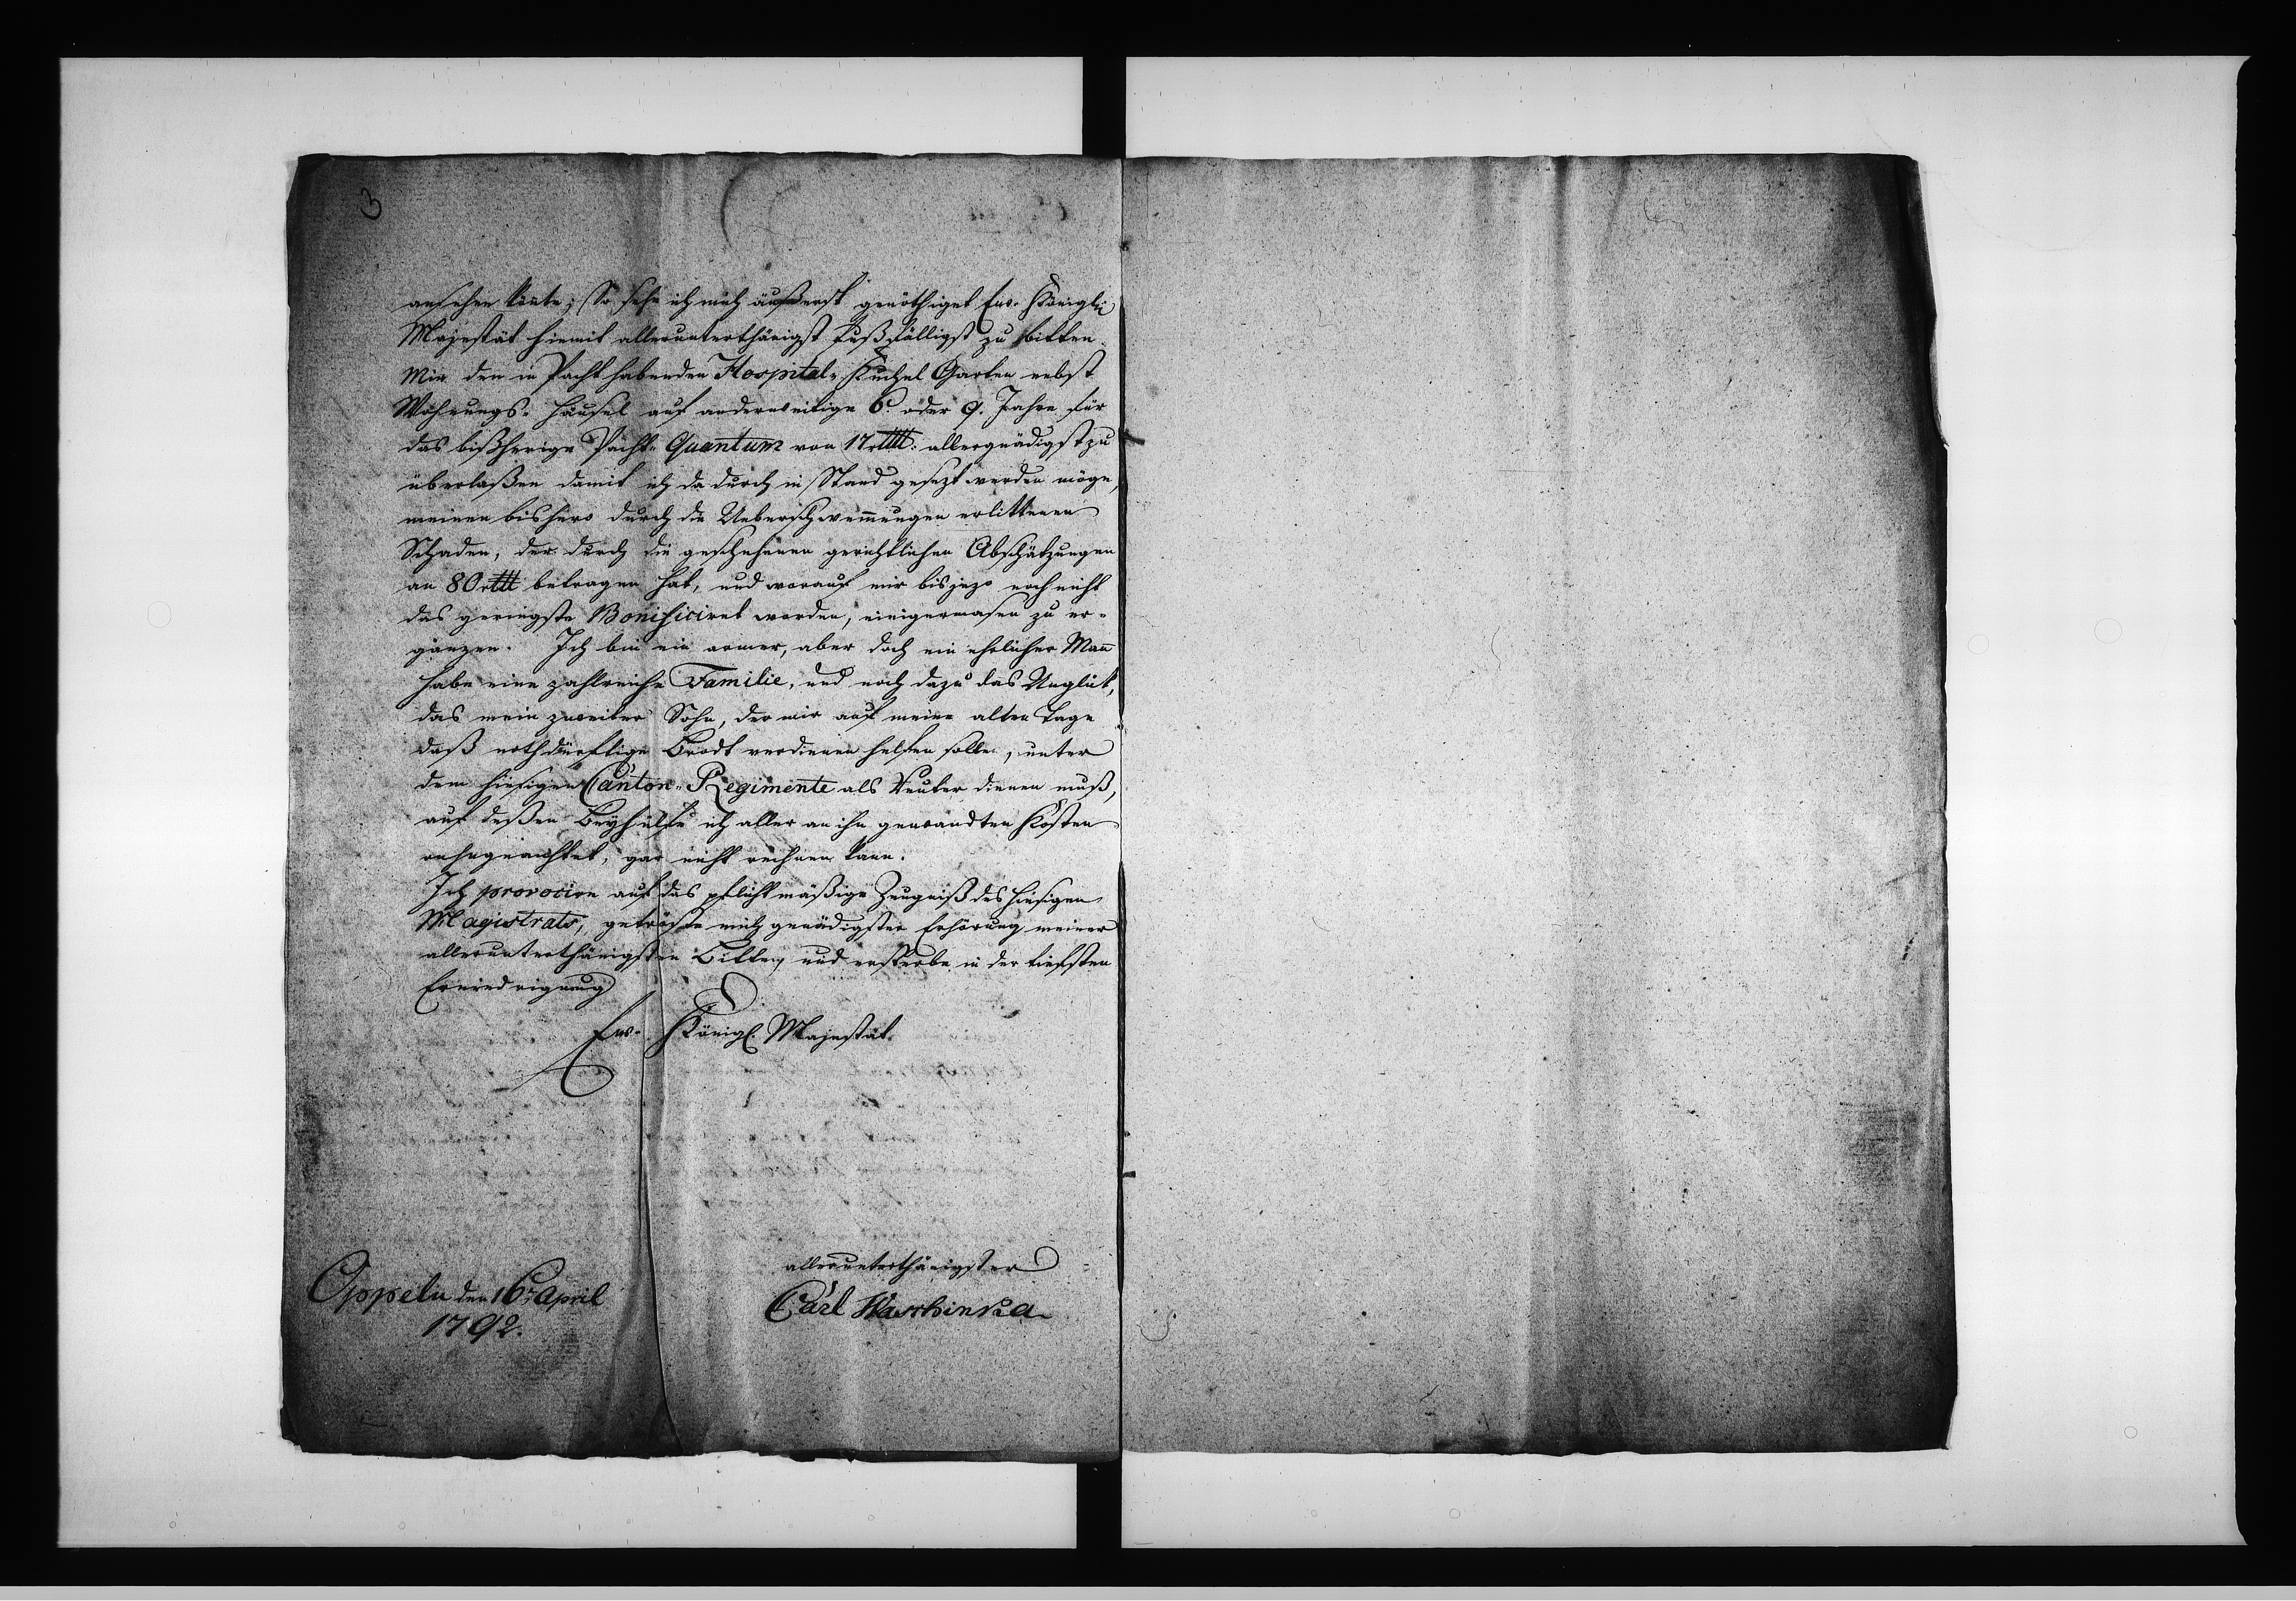 3
ansehen könte; So sehe ich mich äußerst genöthiget Ew. Königl:
Majestät hiemit allerunterthänigst fußfälligst zu bitten.
Mir den in Pacht habenden Hospital-Kuchel Garten nebst
Wohnungs-Häusel auf anderweitige 6. oder 9. Jahre für
das bißherige Pacht-Quantum von 17 rttl: allergnädigst zu
überlaßen damit ich dadurch in Stand gesezt werden möge,
meinen bishero durch die Ueberschwemmungen erlittenen
Schaden, der durch die geschehenen gerichtlichen Abschätzungen
an 80 rttl betragen hat, und worauf mir bis jezo noch nicht
das geringste Bonificiret worden, einigermasen zu er-
gänzen. Ich bin ein armer, aber doch ein ehrlicher Mann
habe eine zahlreiche Familie, und noch dazu das Unglük,
das mein zweiter Sohn, der mir auf meine alten Tage
daß nothdürftige Brodt verdienen helfen sollte, unter
dem hiesigen Canton-Regimente als Reuter dienen muß,
auf deßen Beyhülfe ich aller an ihn gewandten Kosten
ohngeachtet, gar nicht rechnen kann.
Ich provocire auf das pflichtmäßige Zeugniß des hiesigen
Magistrats, getröste mich gnädigster Erhörung meiner
allerunterthänigsten Bitten, und ersterbe in der tiefsten
Erniedrigung
Ew. Königl. Majestät.
allerunterthänigster
Carl Waschinka
Oppeln den 16t April
1792.